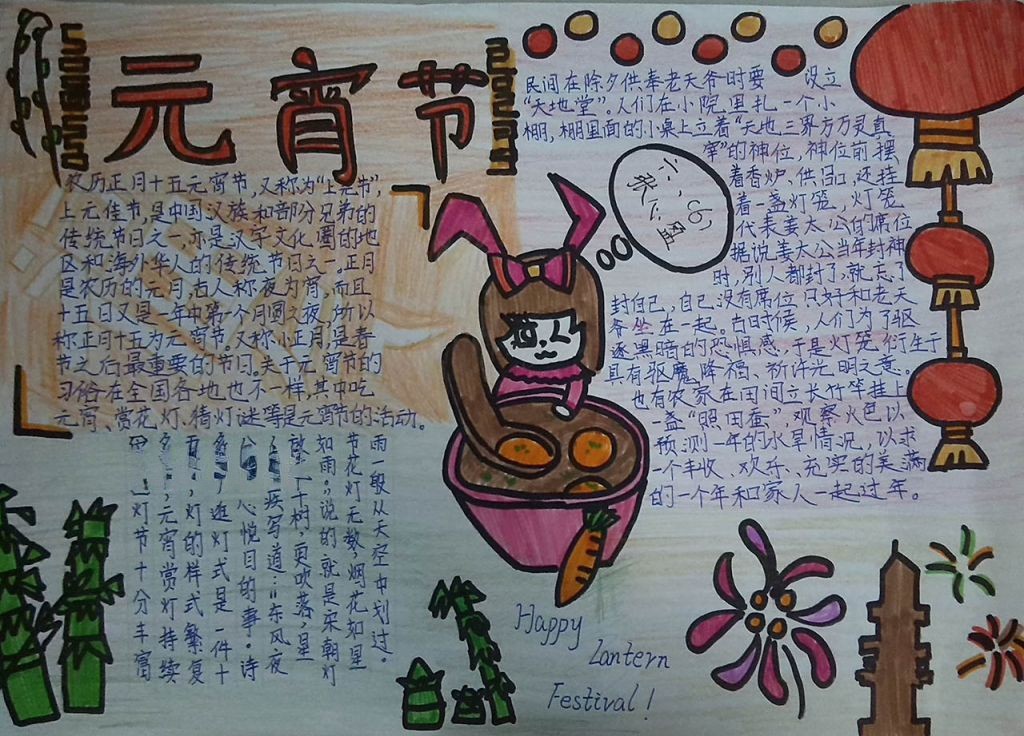 元宵节
农历正月十五元宵节,又称为"上元节"
上元佳节,是中国汉族和部分兄弟的
传统节日之一,亦是汉字文化圈的地
区和海外华人的传统节日之一。正月
是农历的元月,古人称夜为宵,而且
十五日又是一年中第一个月圆之夜,所以
称正月十五为元宵节。又称小正月,是春
节之后最重要的节日。关于元宵节的
习俗在全国各地也不一样,其中吃
元宵、赏花灯、猜灯谜等是元宵节的活动。
民间在除夕供奉老天爷时要 设立
"天地堂"。人们在小院里扎一个小
棚,棚里面的小桌上立着"天地三界方万灵真
宰"的神位,神位前摆
着香炉、供品,还挂
着一盏灯笼,灯笼
代表姜太公的席位
据说姜太公当年封神
时,别人都封了,就忘了
封自己,自己没有席位,只好和老天
爷坐在一起。古时候,人们为了驱
逐黑暗的恐惧感,于是灯笼衍生于
具有驱魔降福、祈许光明之意。
也有农家在田间立长竹竿挂上
一盏"照田蚕",观察火色以
预测一年的水旱情况,以求
一个丰收、欢乐、充实的美满
的一个年和家人一起过年。
雨一般从天空中划过。
节花灯无数,烟花如星
如雨。说的就是宋朝灯
十树,更吹落,星
疾写道:"东风夜
心悦目的事。诗
逛灯式是一件十
灯的样式繁复
元宵赏灯持续
灯节十分丰富
Happy
Lantern
Festival!